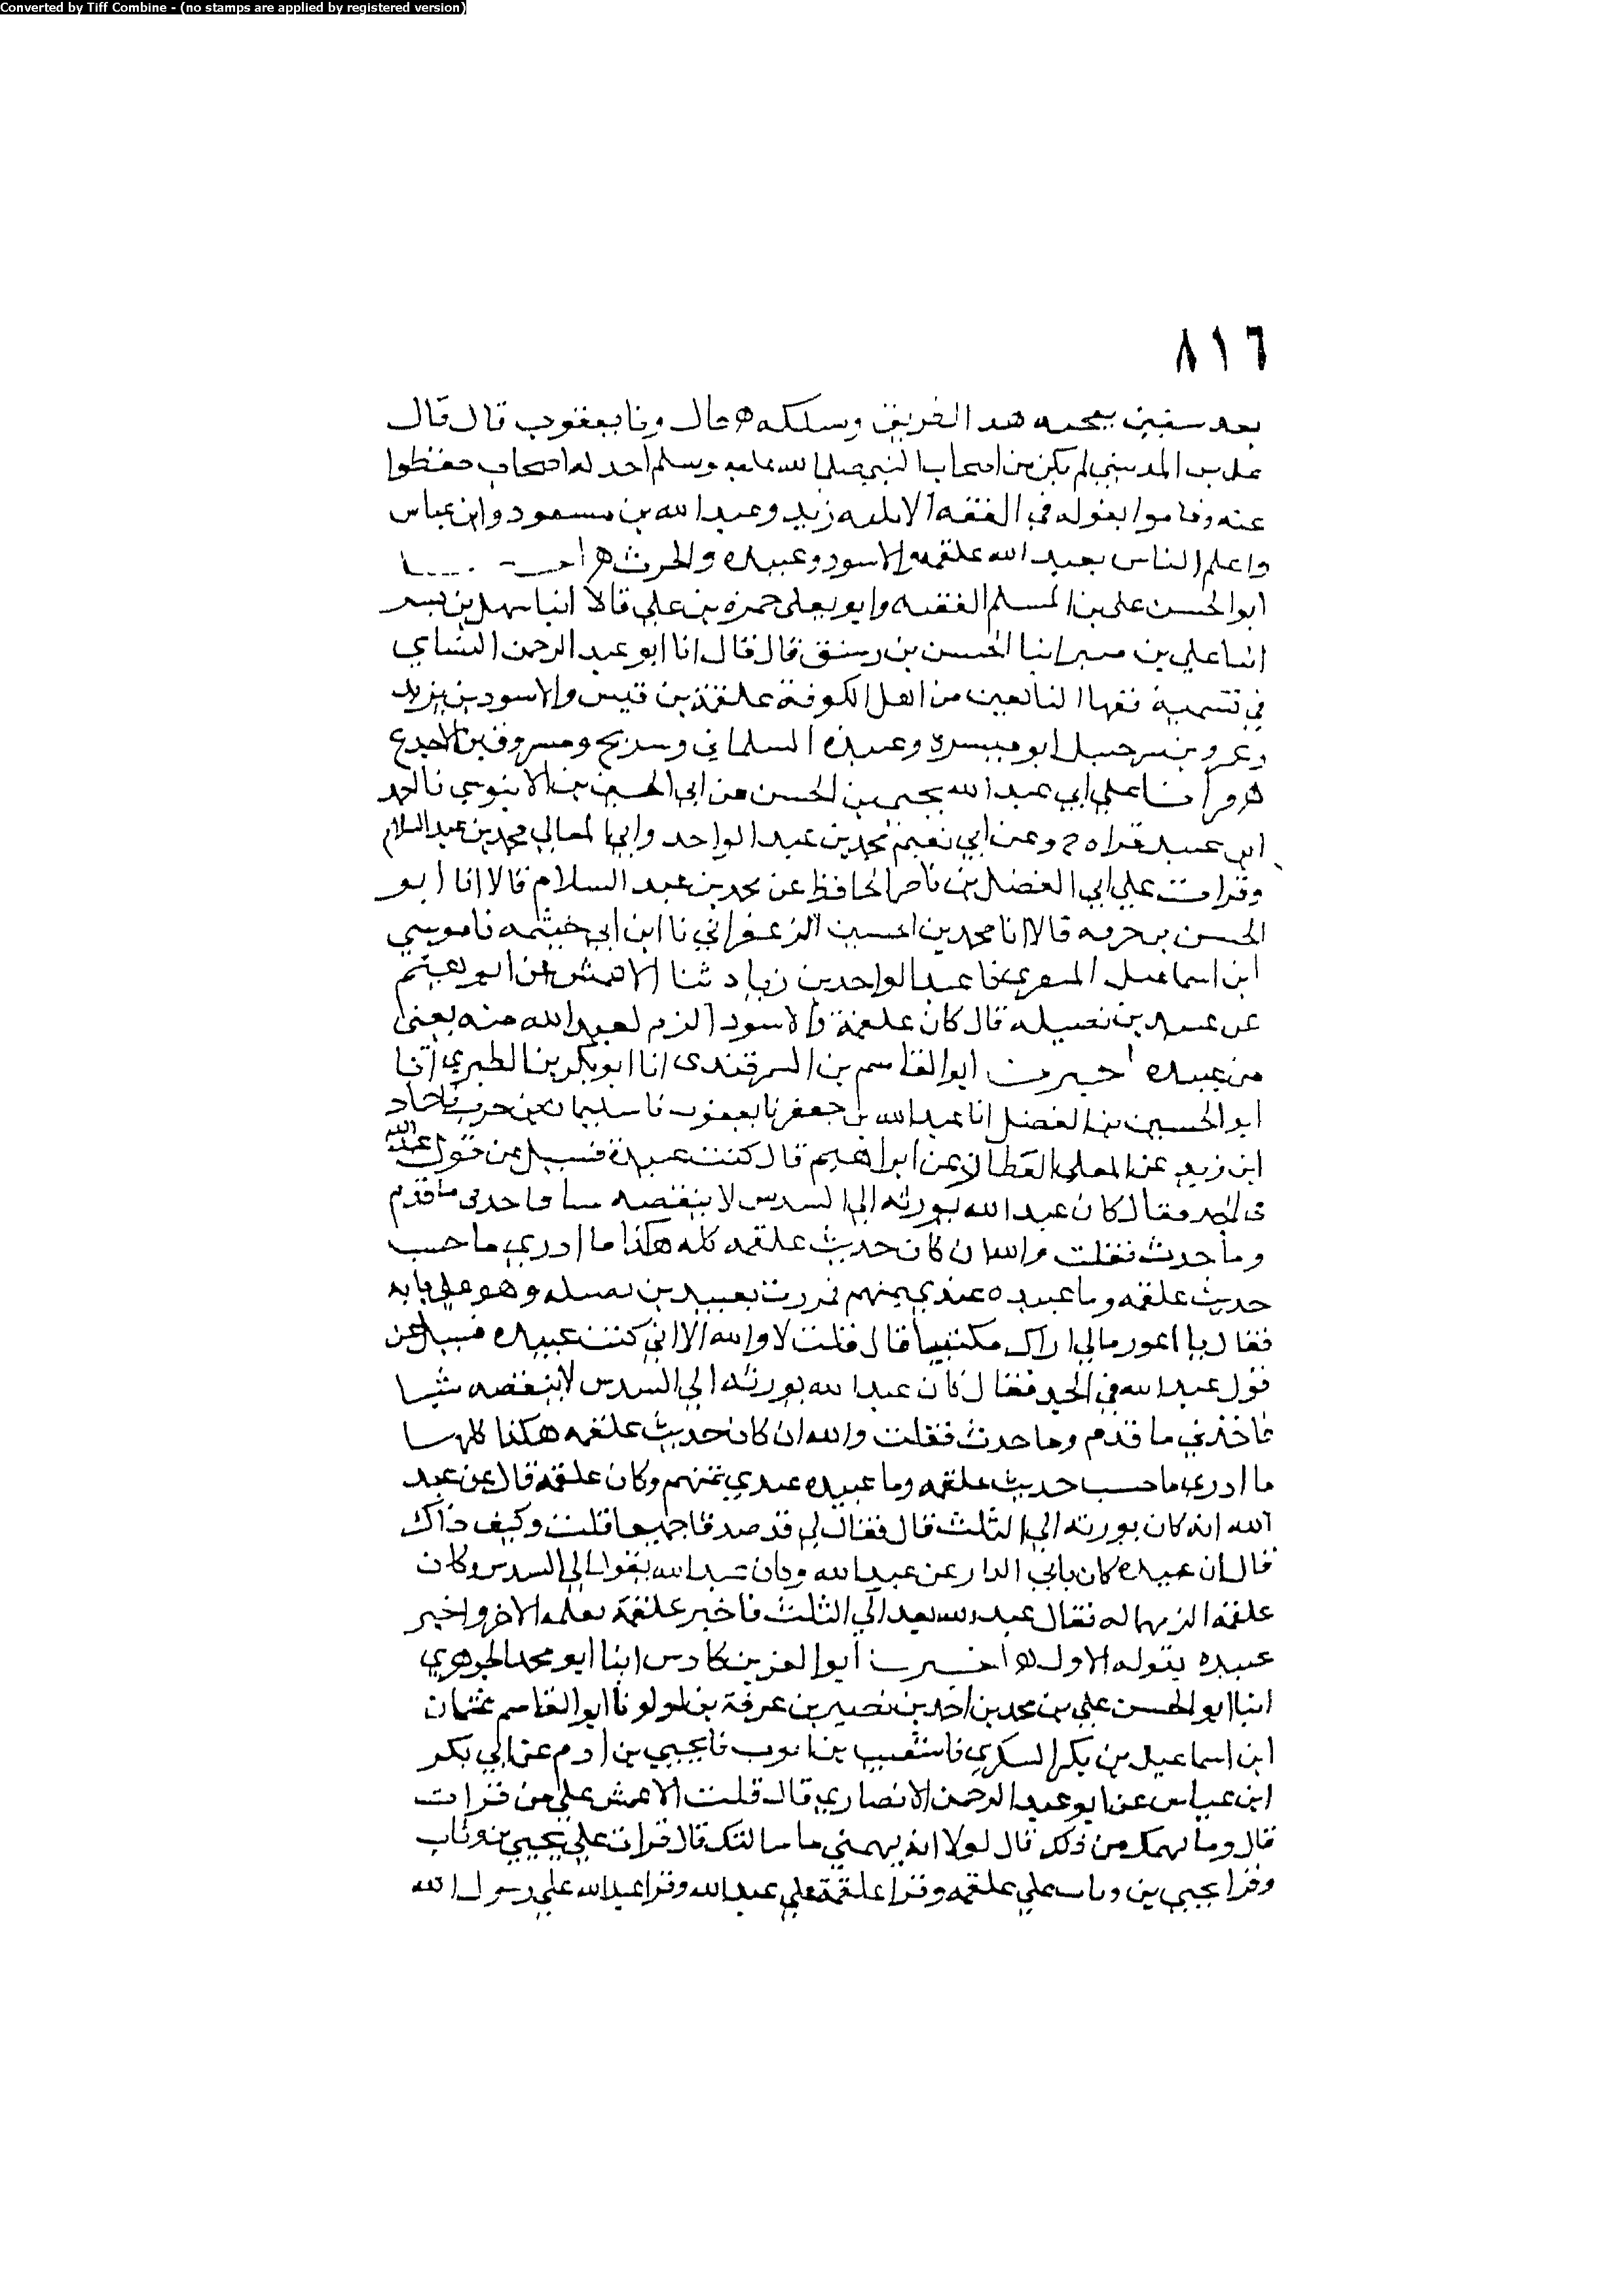 Converted by Tiff Combine - (no stamps are applied by registered version)
٨١٦
بعد سفين يعجبه هذا الطريق وسلكه ه قال ونا يعقوب قال قال
علي بن المديني لم يكن من اصحاب النبي صلى الله عليه وسلم احد له اصحاب حفظوا
عنه وقاموا بقوله في الفقه الا ثلثه زيد وعبد الله بن مسعود وابن عباس
واعلم الناس بعبد الله علقمه والاسود وعبيده والحرث ه
ابو الحسن علي بن المسلم الفقيه وابو يعلى حمزه بن علي قالا انبا سهل بن بشر
انبا علي بن منير انبا الحسن بن رشيق قال قال انا ابو عبد الرحمن النساي
في تسمية فقها التابعين من اهل الكوفة علقمة بن قيس والاسود بن يزيد
وعمرو بن شرحبيل ابو ميسره وعبيدة السلماني وشريح ومسروق بن الاجدع
ه قرأنا علي ابي عبد الله يحيى بن الحسن عن ابي الحسين بن الابنوسي نا احمد
ابن عبيد قراه ح وعن ابي نعيم محمد بن عبد الواحد وابي المعالي محمد بن عبد السلام
وقرات علي ابي الفضل بن ناصر الحافظ عن محمد بن عبد السلام قالا انا ابو
الحسن بن خزفه قالا انا محمد بن الحسين الزعفراني نا ابن ابي خيثمه نا موسي
ابن اسماعيل المنقري نا عبد الواحد بن زياد ثنا الاعمش عن ابرهيم
عن عبيد بن نضيله قال كان علقمة والاسود الزم لعبد الله منه يعني
من عبيده اخبرنا ابو القاسم بن السمرقندى انا ابو بكر بن الطبري انا
ابو الحسين بن الفضل انا عبد الله بن جعفر نا يعقوب نا سليمان بن حرب نا حماد
ابن زيد عن المعلي العطار عن ابراهيم قال كنت عند عبيدة فسيل عن قول عبد الله
في الجد فقال كان عبد الله يورثه الي السدس لا ينقصه شيا فاخذني ما قدم
وما حدث فقلت والله ان كان حديث علقمه كله هكذا ما ادري ما حسب
حديث علقمه وما عبيده عندي بمتهم فمررت بعبيد بن نضيله وهو علي بابه
فقال يا اعور مالي اراك مكتئبيا قال قلت لا والله الا اني كنت عبيده فسيل عن
قول عبد الله في الجد فقال كان عبد الله يورثه الي السدس لا ينقصه شيا
فاخذني ما قدم وما حدث فقلت والله ان كان حديث علقمه هكذا كله
ما ادري ما حسب حديث علقمه وما عبيده عندي بمتهم وكان علقمه قال عن عبد
الله انه كان يورثه الي الثلث قال فقال لي قد صدقا جميعا قلت وكيف ذاك
قال ان عبيده كان ياتي الدار عن عبد الله وكان عبد الله يقول الي السدس وكان
علقمة الزمهما له فقال عبد الله بعد الي الثلث فاخبر علقمة بعلمه الاخر واخبر
عبيده بقوله الاول ه اخبرنا ابو العز بن كادش ابنا ابو محمد الجوهري
انبا ابو الحسن علي بن محمد بن احمد بن نصير بن عرفة بن لولو نا ابو القاسم عثمان
ابن اسماعيل بن بكر السكري نا شعيب بن ايوب نا يحيي بن ادم عن ابي بكر
ابن عياش عن ابو عبد الرحمن الانصاري قال قلت الاعمش علي من قرات
قال وما يهمك من ذلك قال لولا انه يهمني ما سالتك قال قرات علي يحيي بن وثاب
وقرا يحيي بن وثاب علي علقمه وقرا علقمة علي عبد الله وقرا عبد الله علي رسول الله